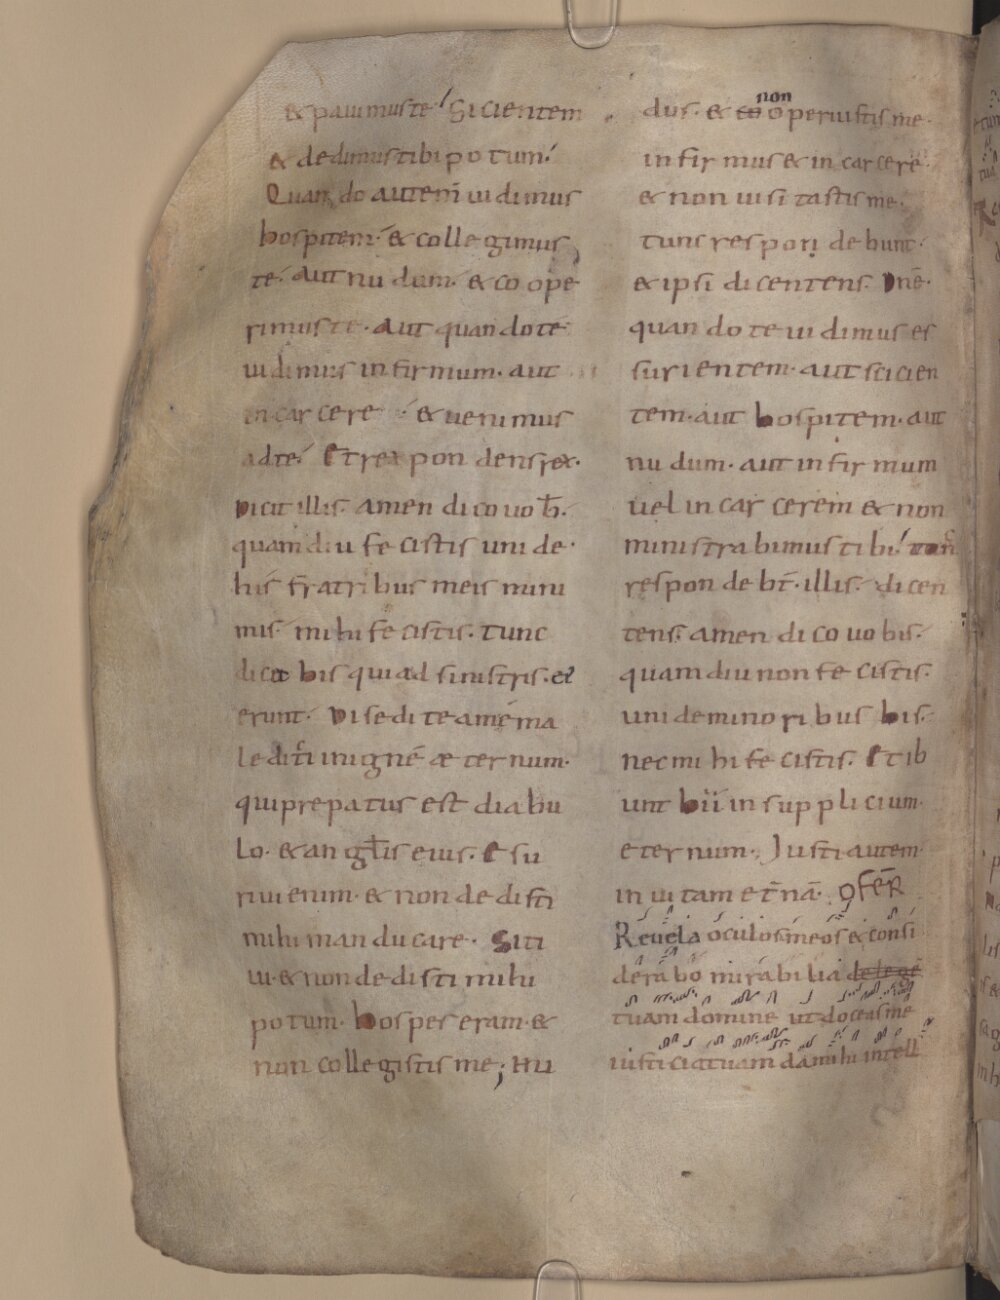 & pauimuste Si cientem
& dedimus tibi potum.
Quando autem uidimus
hospitem. & collegimus
te. aut nudum. & coope
rimus te. aut quando te
uidimus infirmum. aut
in carcere & uenimus
ad te. Et respondens rex.
Dicit illis. amen dico uob.
quamdiu fecistis uni de.
his fratribus meis mini
mis. mihi fecistis. tunc
dicet bis qui ad sinistris. et
erunt. Discedite a me ma
ledicti in igne æternum.
qui prepatus est diabu
lo. & anglis eius. Esu
riui enim. & non dedisti
mihi manducare. Siti
ui. & non dedisti mihi
potum. hospes eram. &
non collegistis me; nu
dus. & co non operuistis me.
infirmus & in carcere.
& non uisitastis me.
tunc respondebunt.
& ipsi dicentens. Dne.
quando te uidimus es
surientem. aut scicien
tem. aut hospitem. aut
nudum. aut infirmum
uel in carcerem & non
ministrabimus tibi. tunc
respondebt. illis. dicen
tens. amen dico uobis.
quamdiu non fecistis.
uni de minoribus his.
nec mihi fecistis. Et ib
unt hii in supplicium.
eternum. Iusti autem
in uitam etnã. OFER
Reuela oculos meos & consi
derabo mirabilia de lege
tuam domine ut doceas me
iusticia tuam da mihi intell